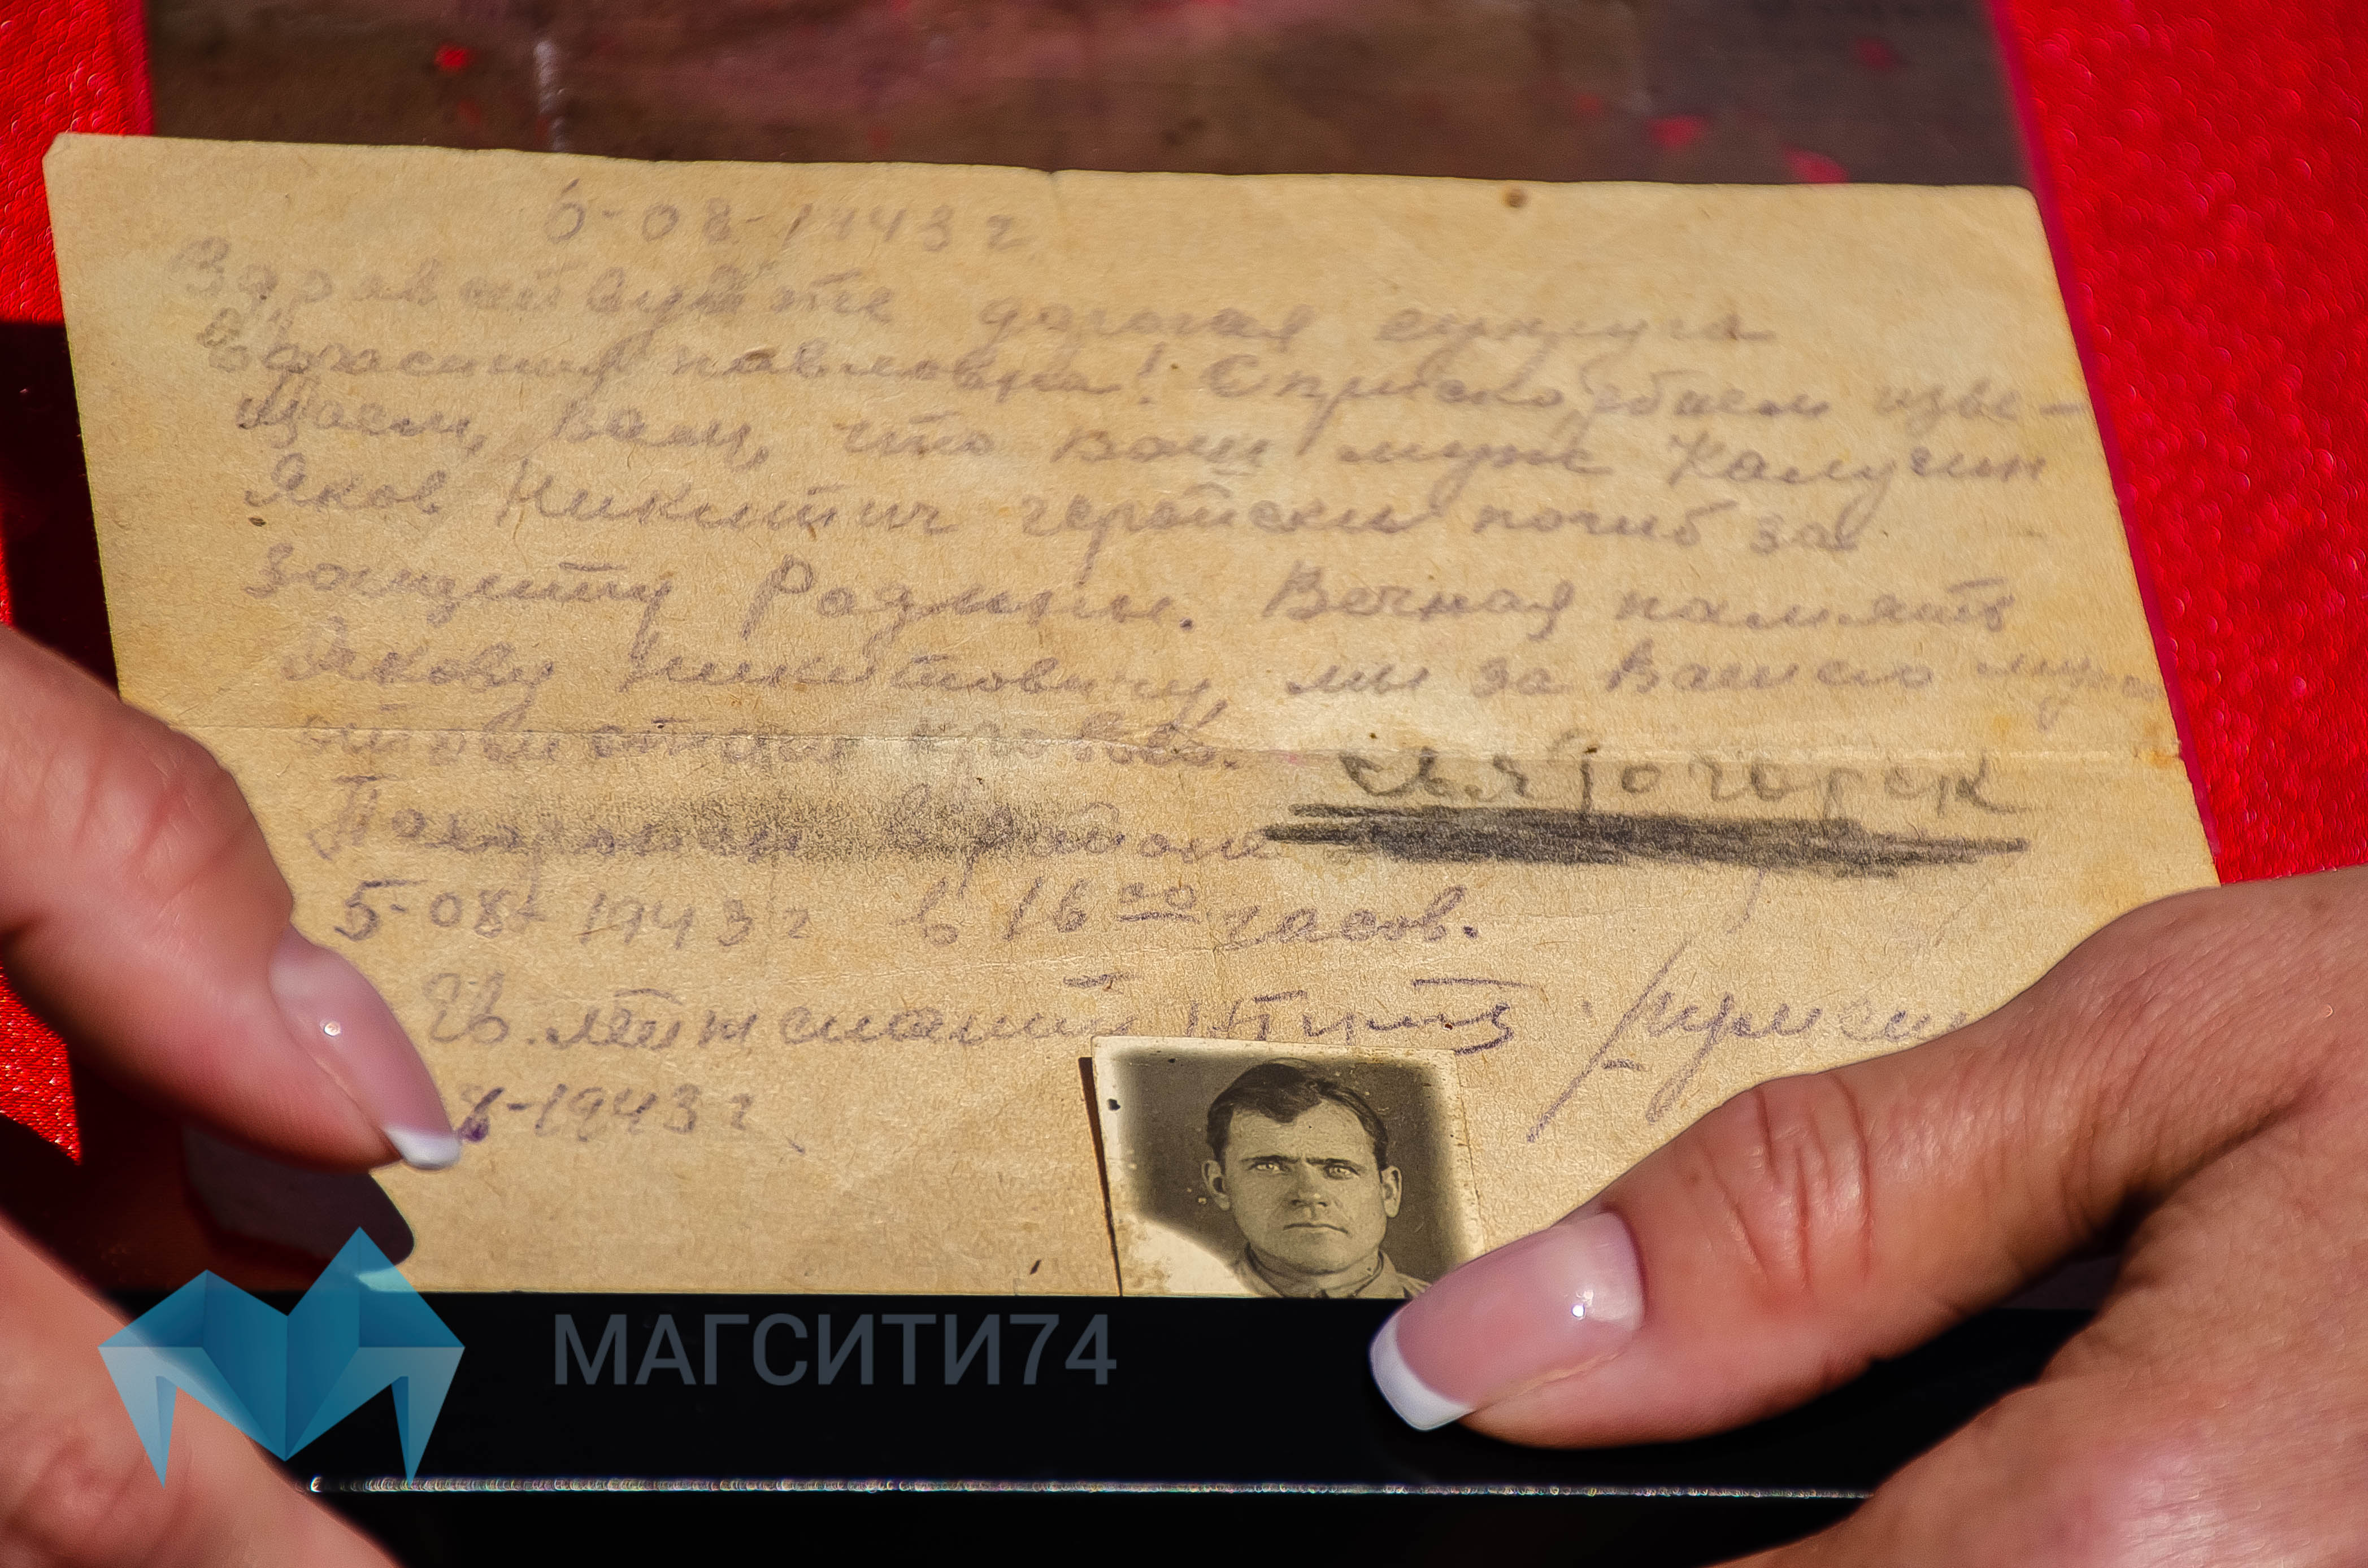 6-08-1943 г
Здравствуйте дорогая супруга
павловна! С прискорбием изве-
щаем, вам, что ваш муж Калугин
Яков Никитич геройски погиб за
защиту Родины. Вечная память
Якову Никитовичу, мы за Вашего
отомстим кровью.
святогорск
Похоронен в районе
5-08-1943 г в 16 00 часов.
Гв. лейтенант
8-1943 г
МАГСИТИ74